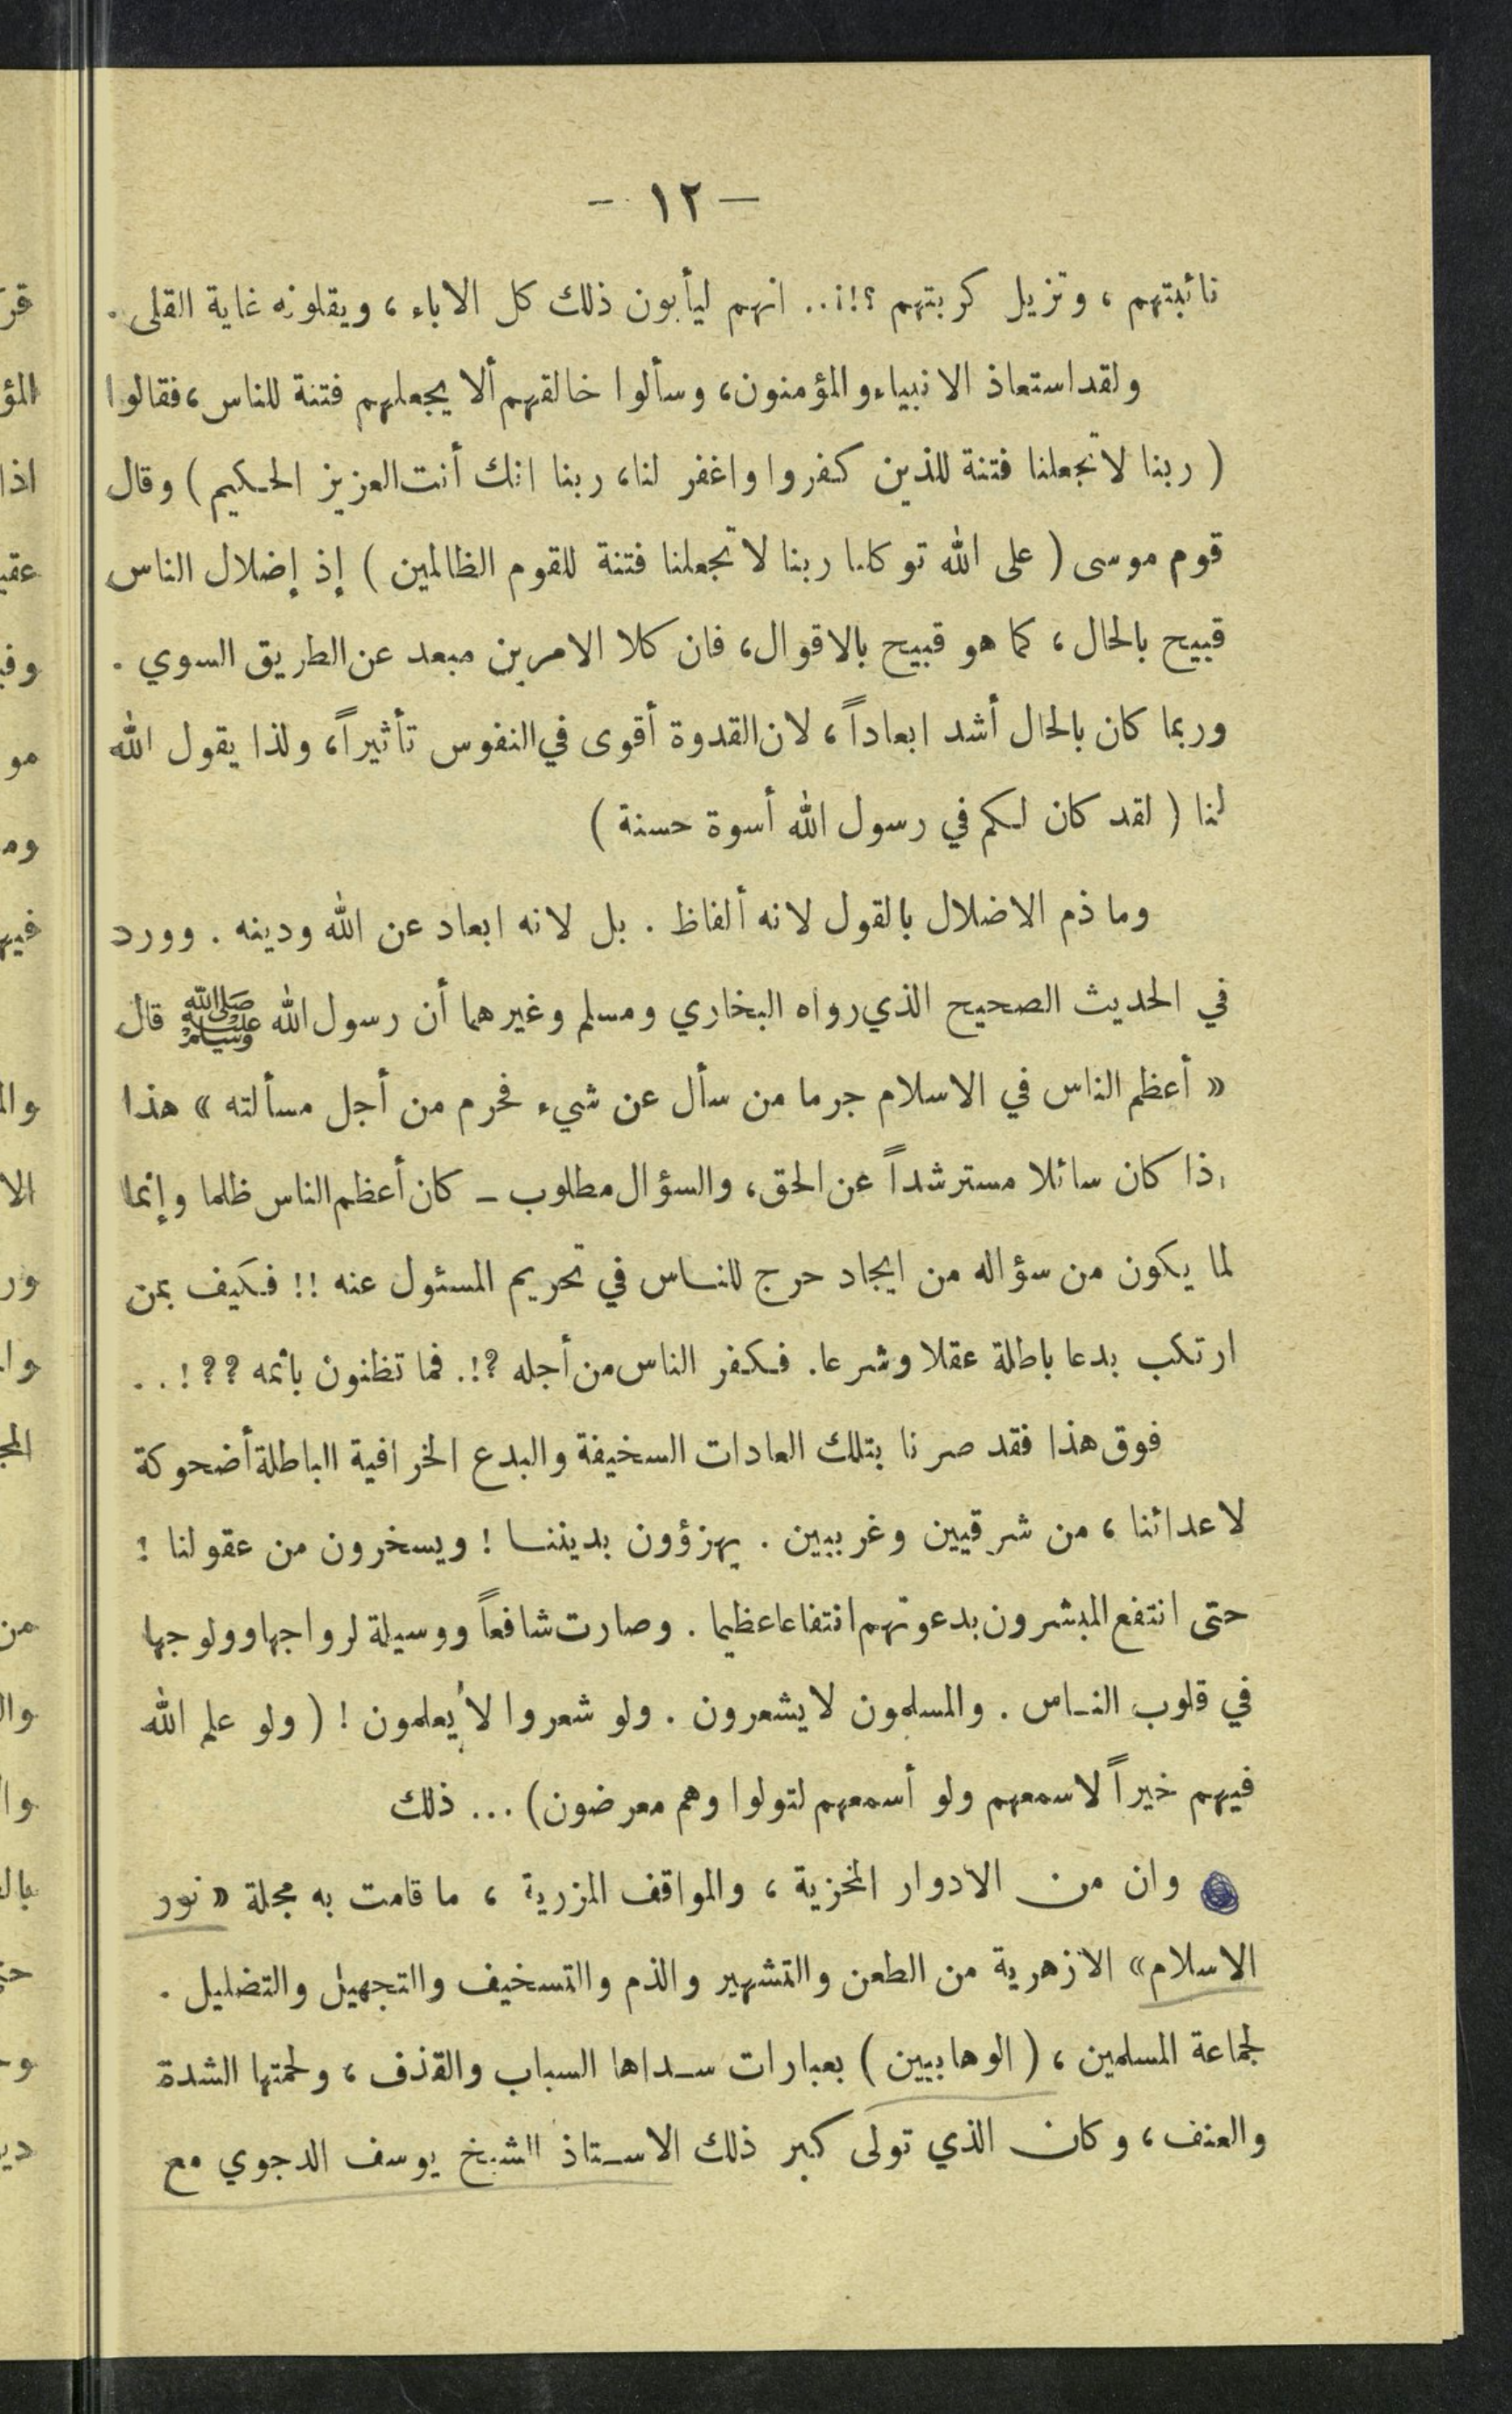 — ١٢ -
نائبتهم ، وتزيل كربتهم ؟!¡.. انهم ليأبون ذلك كل الاباء ، ويقلونه غاية القلى .
ولقد استعاذ الانبياء والمؤمنون، وسألوا خالقهم ألا يجعلهم فتنة للناس ، فقالوا
( ربنا لا تجعلنا فتنة للذين كفروا واغفر لنا، ربنا انك أنت العزيز الحكيم ) وقال
قوم موسى ( على الله توكلنا ربنا لا تجعلنا فتنة للقوم الظالمين ) إذ إضلال الناس
قبيح بالحال ، كما هو قبيح بالاقوال، فان كلا الامرين مبعد عن الطريق السوي .
وربما كان بالحال أشد ابعاداً ، لان القدوة أقوى في النفوس تأثيراً، ولذا يقول الله
لنا ( لقد كان لكم في رسول الله أسوة حسنة )
وما ذم الاضلال بالقول لانه ألفاظ . بل لانه ابعاد عن الله ودينه . وورد
في الحديث الصحيح الذي رواه البخاري ومسلم وغيرهما أن رسول الله ﷺ قال
« أعظم الناس في الاسلام جرما من سأل عن شيء فحرم من أجل مسألته » هذا
إذا كان سائلا مسترشداً عن الحق، والسؤال مطلوب ـ كان أعظم الناس ظلما وإنما
لما يكون من سؤاله من ايجاد حرج للناس في تحريم المسئول عنه !! فكيف بمن
ارتكب بدعا باطلة عقلا وشرعا. فكفر الناس من أجله ?!. فما تظنون بائمه ??!..
فوق هذا فقد صرنا بتلك العادات السخيفة والبدع الخرافية الباطلة أضحوكة
لاعدائنا ، من شرقيين وغربيين . يهزؤون بديننا ! ويسخرون من عقولنا !
حتى انتفع المبشرون بدعوتهم انتفاعا عظيما . وصارت شافعاً ووسيلة لرواجها وولوجها
في قلوب الناس . والمسلمون لا يشعرون . ولو شعروا لا يعلمون ! ( ولو علم الله
فيهم خيراً لاسمعهم ولو أسمعهم لتولوا وهم معرضون) ... ذلك
وان من الادوار المخزية ، والمواقف المزرية ، ما قامت به مجلة « نور
الاسلام» الازهرية من الطعن والتشهير والذم والتسخيف والتجهيل والتضليل .
لجماعة المسلمين ، ( الوهابيين ) بعبارات سداها السباب والقذف ، ولحمتها الشدة
والعنف ، وكان الذي تولى كبر ذلك الاستاذ الشيخ يوسف الدجوي مع